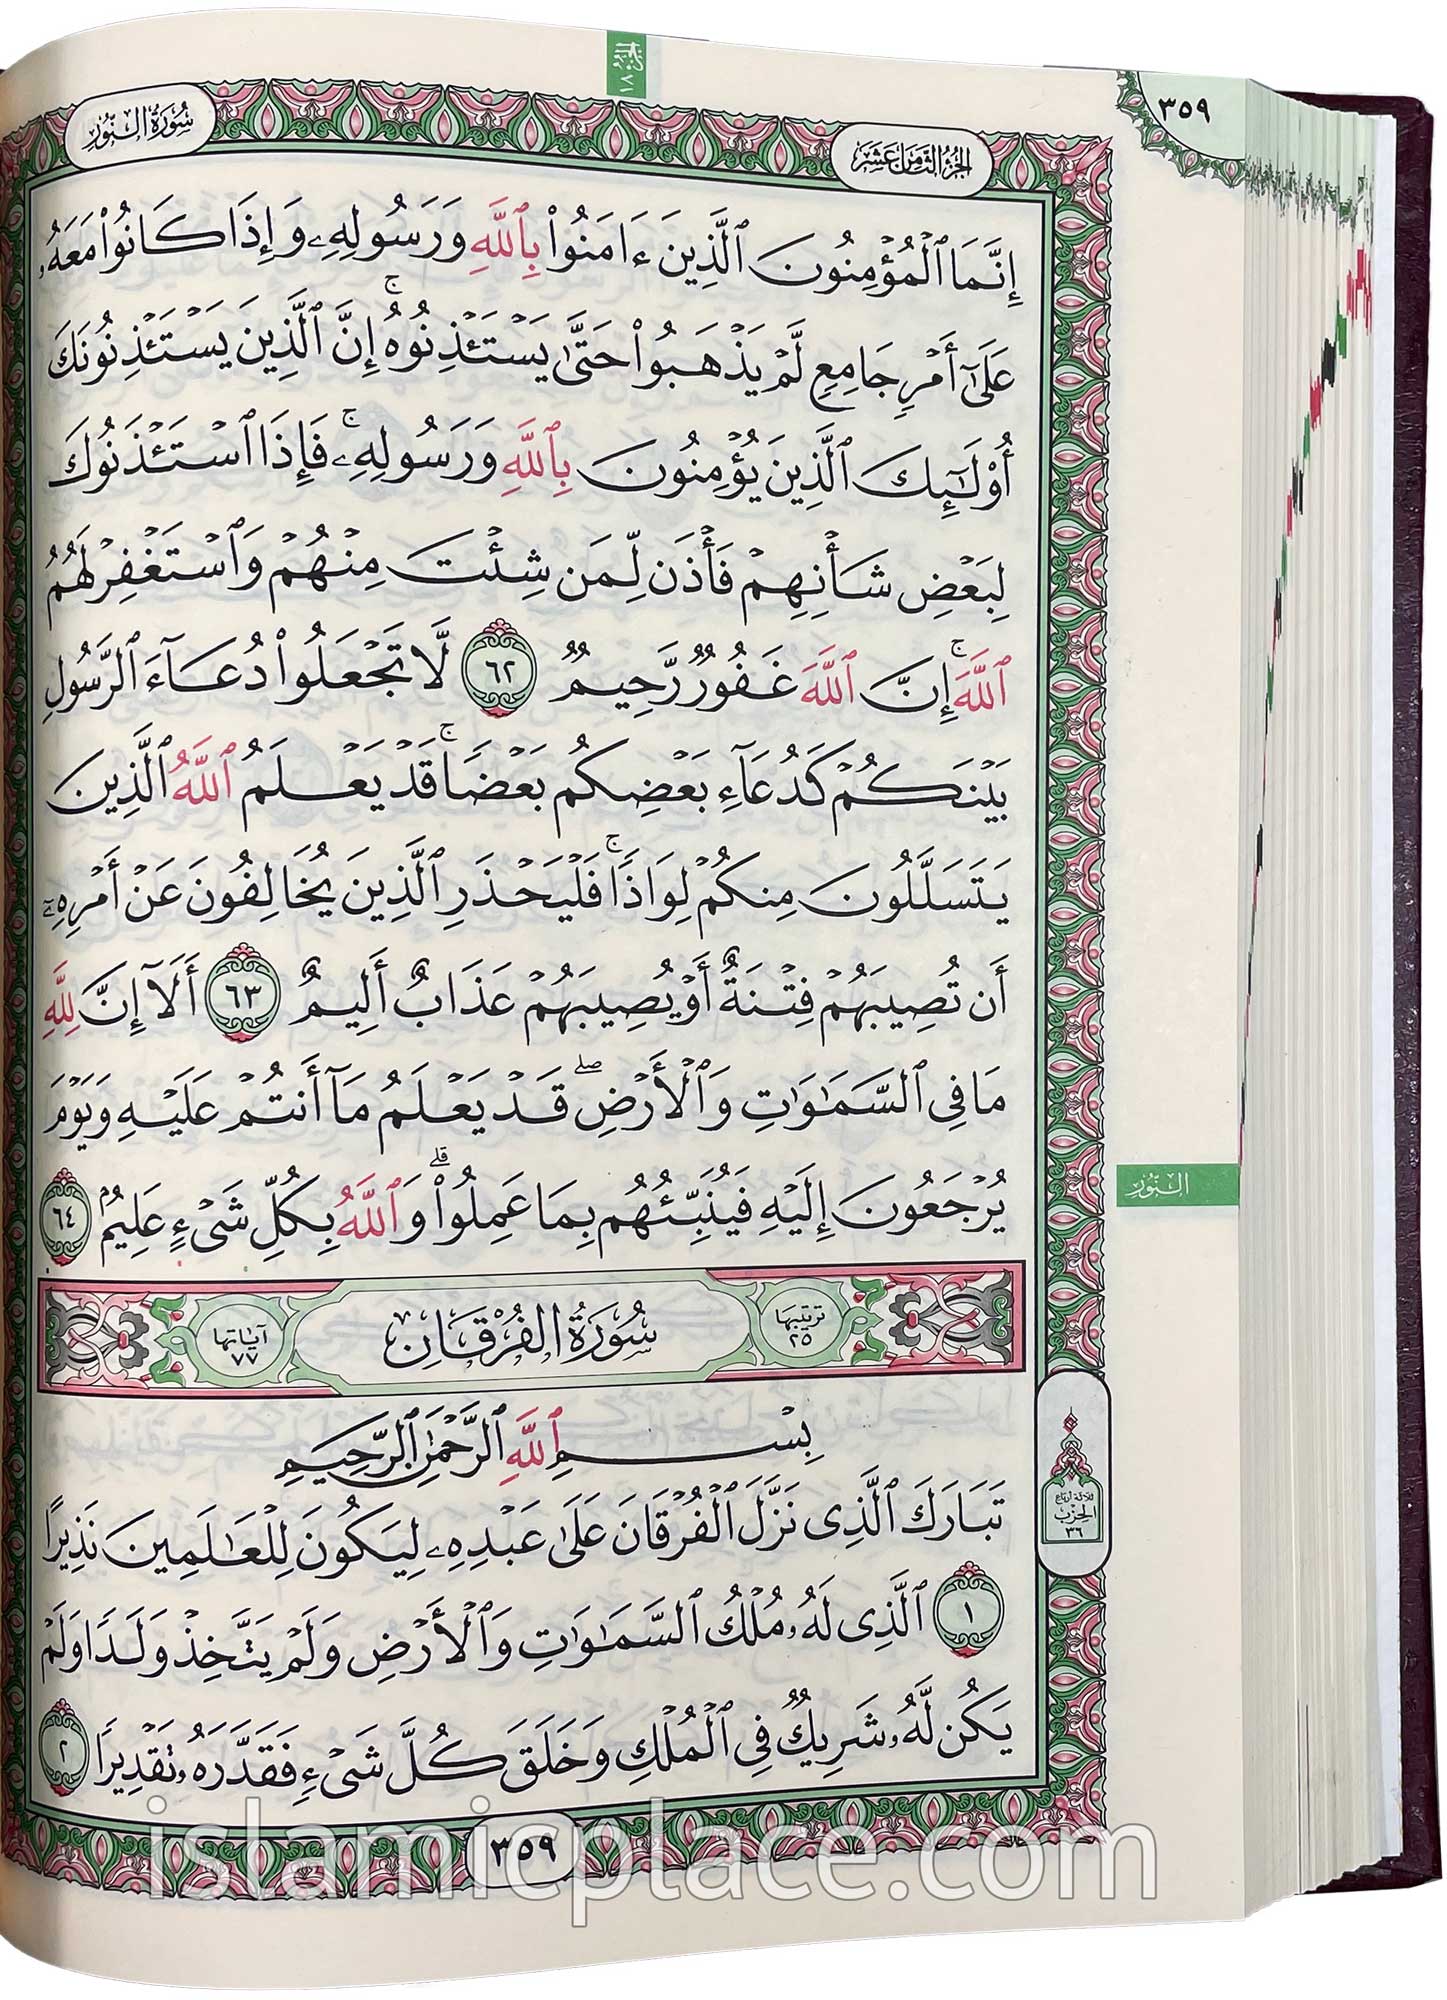 الجزء ١٨
٣٥٩
الجُزْءُ الثَّامِنَ عَشَرَ
سُورَةُ النُّورِ
إِنَّمَا ٱلْمُؤْمِنُونَ ٱلَّذِينَ ءَامَنُوا۟ بِٱللَّهِ وَرَسُولِهِۦ وَإِذَا كَانُوا۟ مَعَهُۥ
عَلَىٰٓ أَمْرٍ جَامِعٍ لَّمْ يَذْهَبُوا۟ حَتَّىٰ يَسْتَـْٔذِنُوهُ ۚ إِنَّ ٱلَّذِينَ يَسْتَـْٔذِنُونَكَ
أُو۟لَـٰٓئِكَ ٱلَّذِينَ يُؤْمِنُونَ بِٱللَّهِ وَرَسُولِهِۦ ۚ فَإِذَا ٱسْتَـْٔذَنُوكَ
لِبَعْضِ شَأْنِهِمْ فَأْذَن لِّمَن شِئْتَ مِنْهُمْ وَٱسْتَغْفِرْ لَهُمُ
ٱللَّهَ ۚ إِنَّ ٱللَّهَ غَفُورٌ رَّحِيمٌ ٦٢ لَّا تَجْعَلُوا۟ دُعَآءَ ٱلرَّسُولِ
بَيْنَكُمْ كَدُعَآءِ بَعْضِكُم بَعْضًا ۚ قَدْ يَعْلَمُ ٱللَّهُ ٱلَّذِينَ
يَتَسَلَّلُونَ مِنكُمْ لِوَاذًا ۚ فَلْيَحْذَرِ ٱلَّذِينَ يُخَالِفُونَ عَنْ أَمْرِهِۦٓ
أَن تُصِيبَهُمْ فِتْنَةٌ أَوْ يُصِيبَهُمْ عَذَابٌ أَلِيمٌ ٦٣ أَلَآ إِنَّ لِلَّهِ
مَا فِى ٱلسَّمَـٰوَٰتِ وَٱلْأَرْضِ ۖ قَدْ يَعْلَمُ مَآ أَنتُمْ عَلَيْهِ وَيَوْمَ
يُرْجَعُونَ إِلَيْهِ فَيُنَبِّئُهُم بِمَا عَمِلُوا۟ ۗ وَٱللَّهُ بِكُلِّ شَىْءٍ عَلِيمٌۢ ٦٤
النُّور
ترتيبها ٢٥
سُورَةُ الفُرْقَانِ
آياتها ٧٧
بِسْمِ ٱللَّهِ ٱلرَّحْمَـٰنِ ٱلرَّحِيمِ
تَبَارَكَ ٱلَّذِى نَزَّلَ ٱلْفُرْقَانَ عَلَىٰ عَبْدِهِۦ لِيَكُونَ لِلْعَـٰلَمِينَ نَذِيرًا
١ ٱلَّذِى لَهُۥ مُلْكُ ٱلسَّمَـٰوَٰتِ وَٱلْأَرْضِ وَلَمْ يَتَّخِذْ وَلَدًا وَلَمْ
يَكُن لَّهُۥ شَرِيكٌ فِى ٱلْمُلْكِ وَخَلَقَ كُلَّ شَىْءٍ فَقَدَّرَهُۥ تَقْدِيرًا ٢
ثلاثة أرباع
الحزب
٣٦
٣٥٩
islamicplace.com